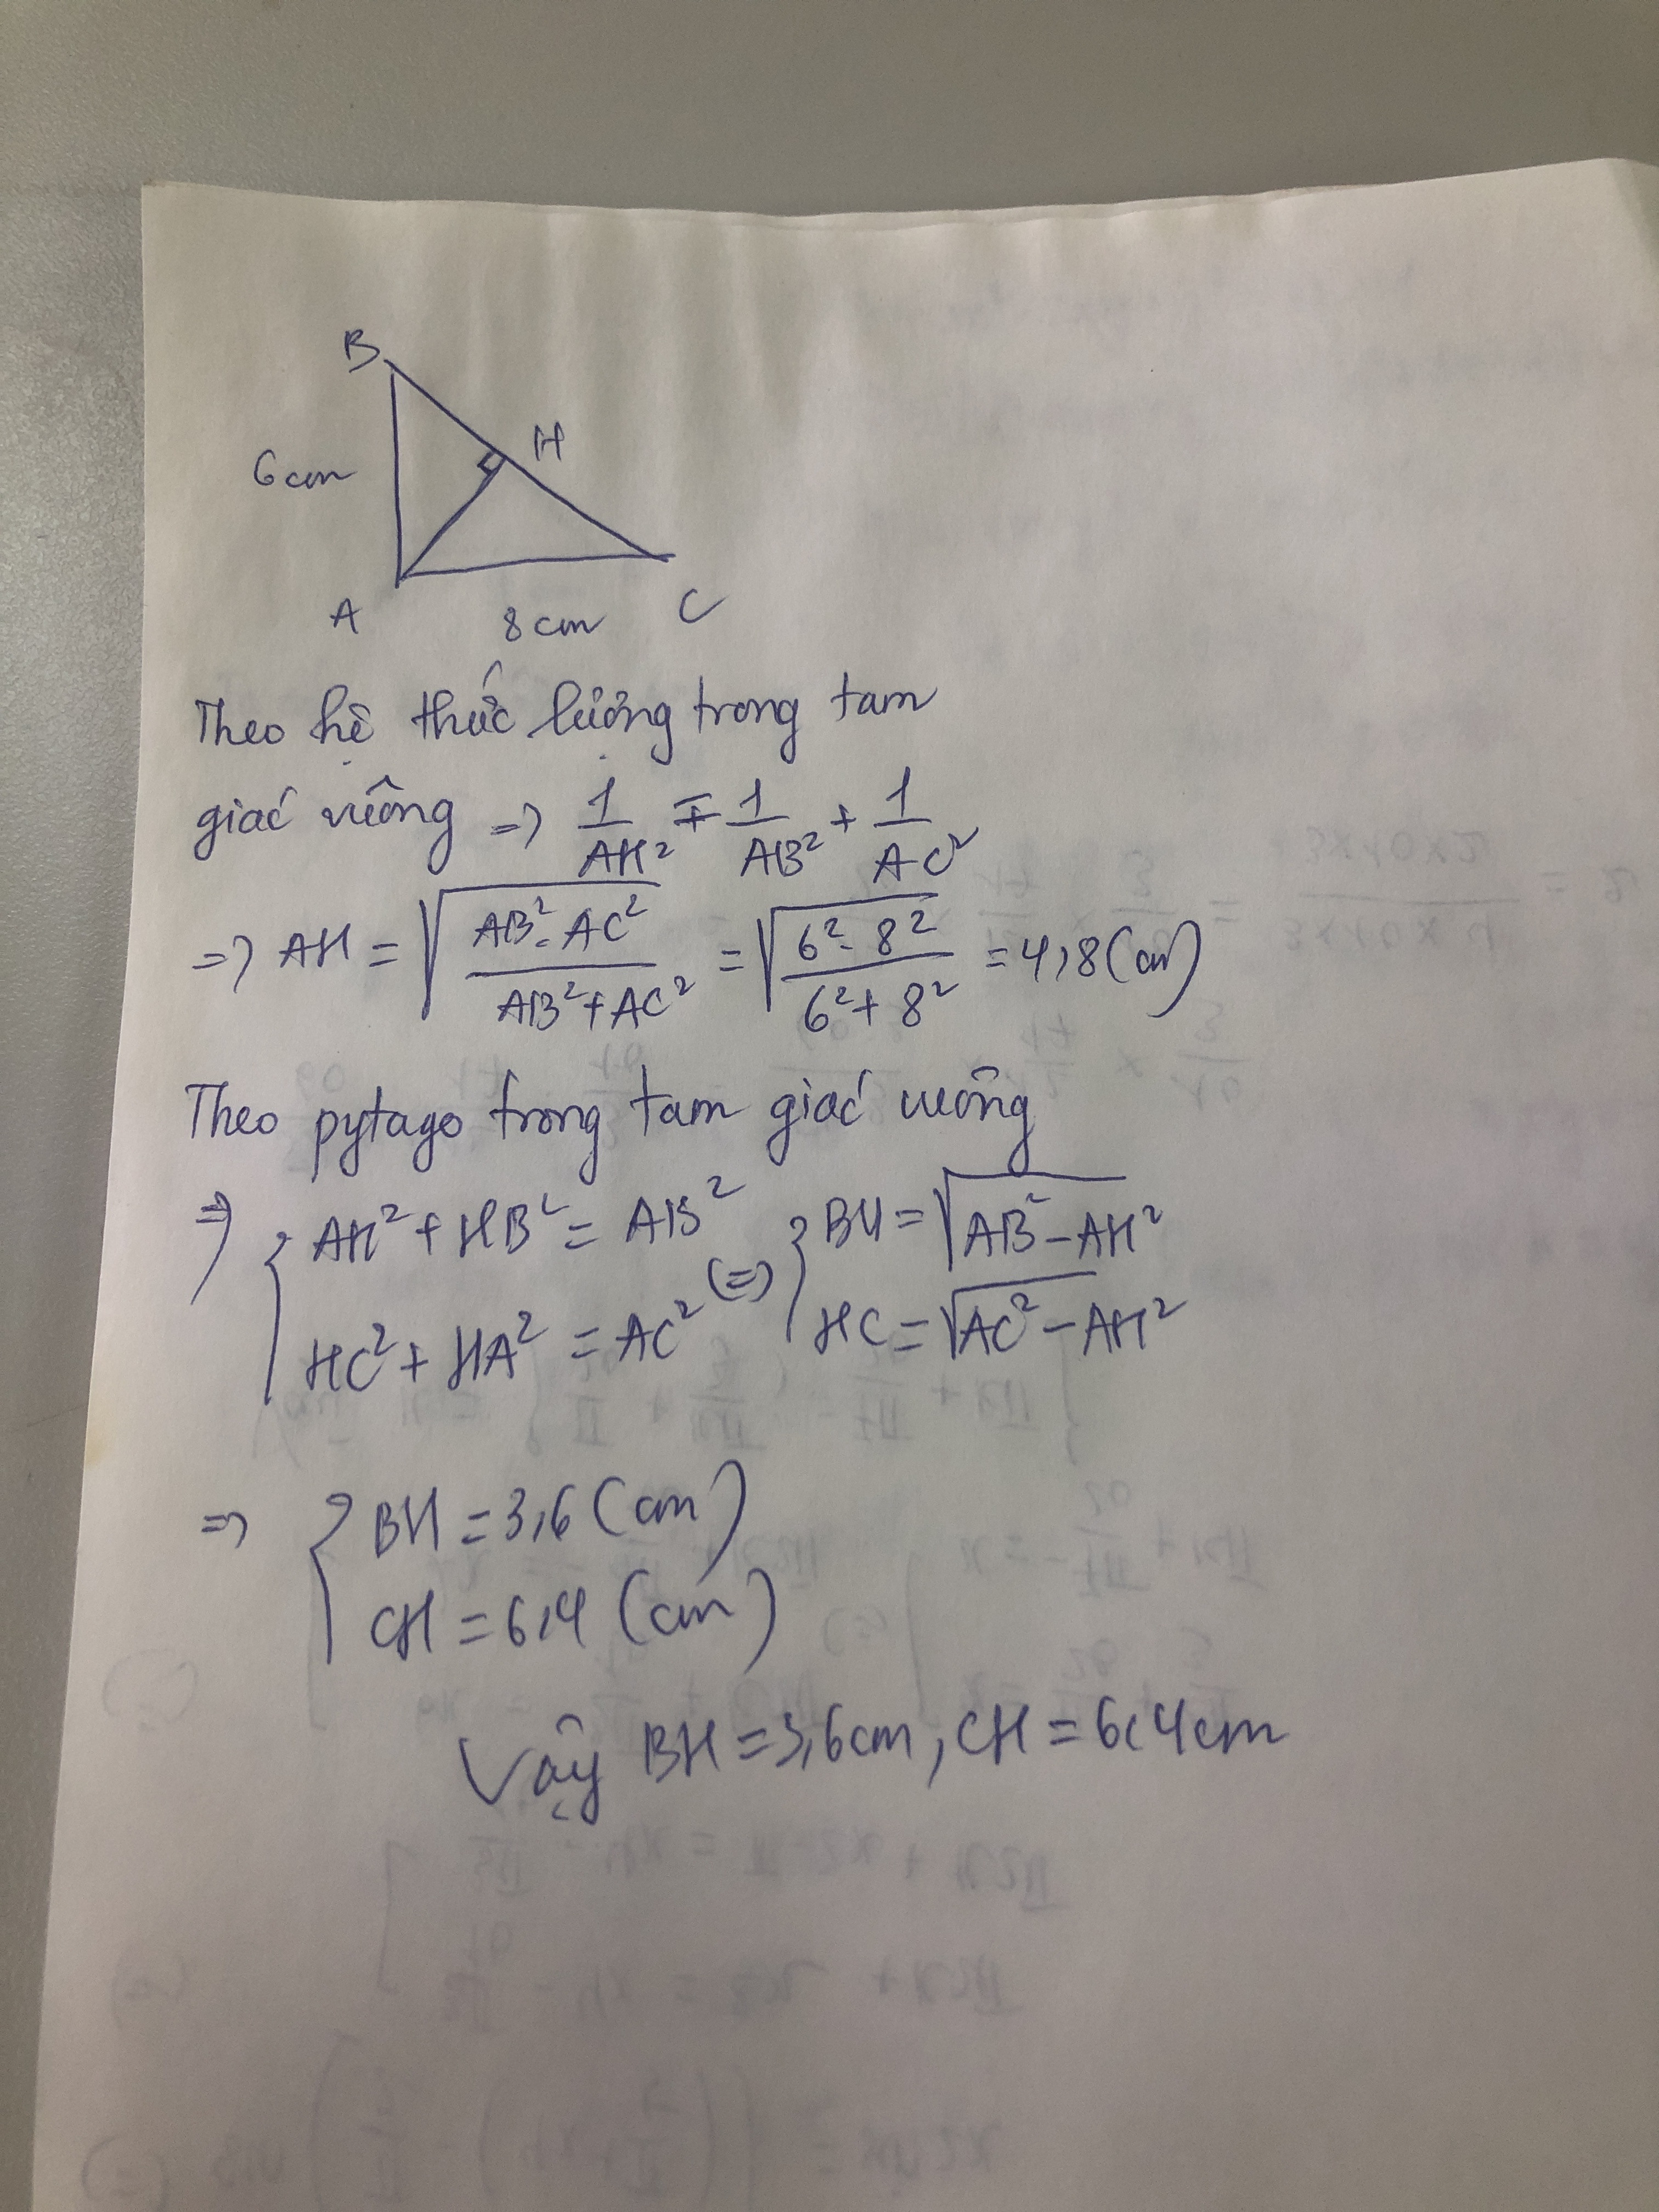 B
H
6cm
A
8cm
C
Theo hệ thức lượng trong tam
giác vuông => 1/AH² = 1/AB² + 1/AC²
=> AH = √(AB².AC²/(AB²+AC²)) = √(6².8²/(6²+8²)) = 4,8 (cm)
Theo pytago trong tam giác vuông
=> { AH² + HB² = AB² (=) { BH = √(AB² - AH²)
HC² + HA² = AC² HC = √(AC² - AH²)
=> { BH = 3,6 (cm)
CH = 6,4 (cm)
Vậy BH = 3,6cm, CH = 6,4cm